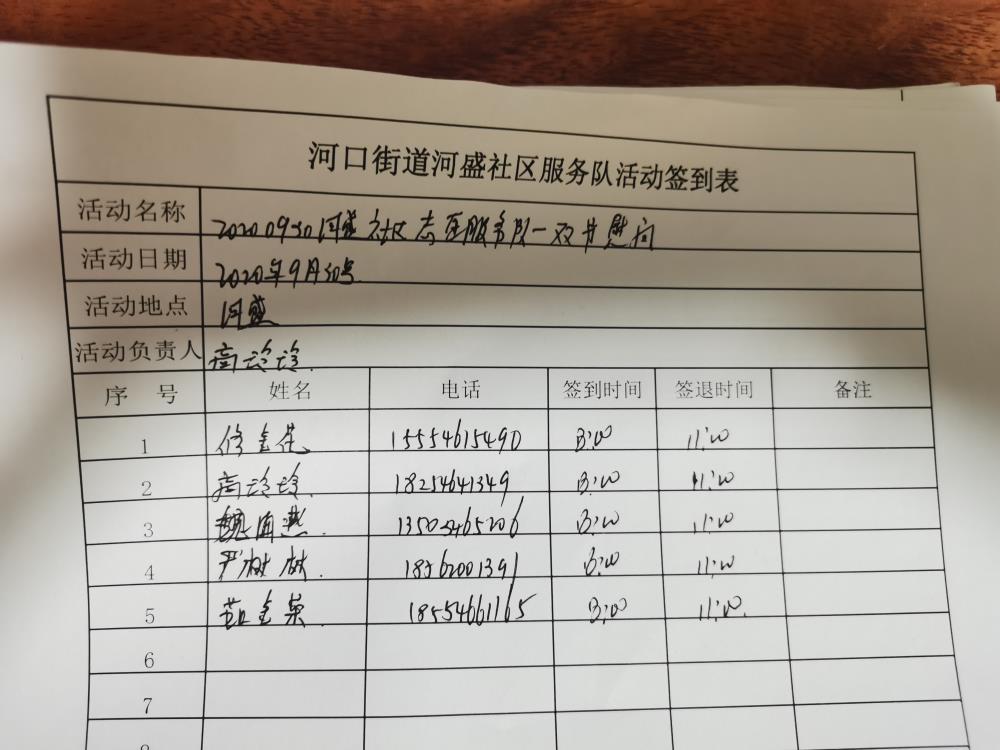 河口街道河盛社区服务队活动签到表
活动名称 20200930河盛社区志愿服务队一双节慰问
活动日期 2020年9月30号
活动地点 河盛
活动负责人 高玲玲
序 号 姓名 电话 签到时间 签退时间 备注
1 15554615490 8:00 11:00
2 高玲玲 18254641349 8:00 11:00
3 魏海燕 13505465206 8:00 11:00
4 严树林 18562001391 8:00 11:00
5 18554661165 8:00 11:00
6
7